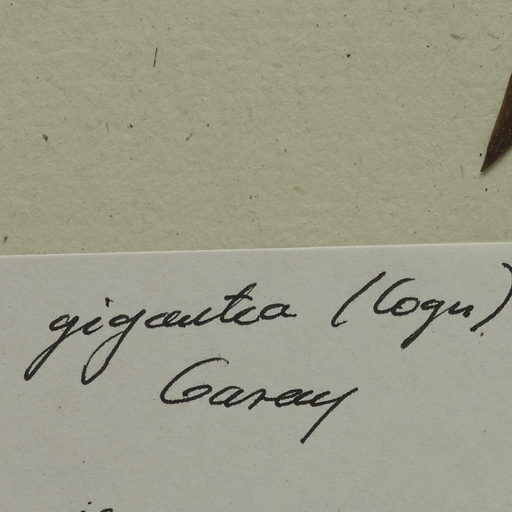 gigantea (Cogn)
Garay